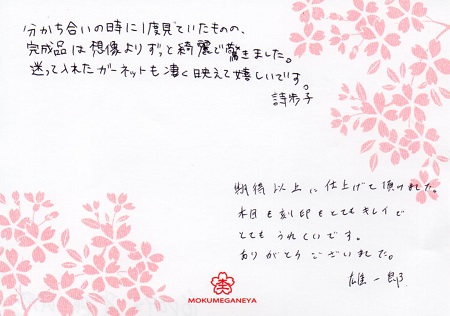 分かち合いの時に1度見ていたものの、
完成品は想像よりずっと綺麗で驚きました。
迷って入れたガーネットも凄く映えて嬉しいです。
詩歩子
期待以上に仕上げて頂けました。
木目も刻印もとてもキレイで
とてもうれしいです。
ありがとうございました。
雄一郎
MOKUMEGANEYA